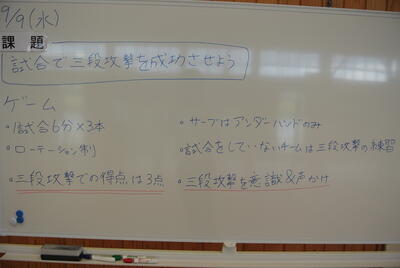 9/9(水)
課題
試合で三段攻撃を成功させよう
ゲーム
・1試合6分×3本
・ローテーション制
・三段攻撃での得点は3点
・サーブはアンダーハンドのみ
・試合をしていないチームは三段攻撃の練習
・三段攻撃を意識&声かけ